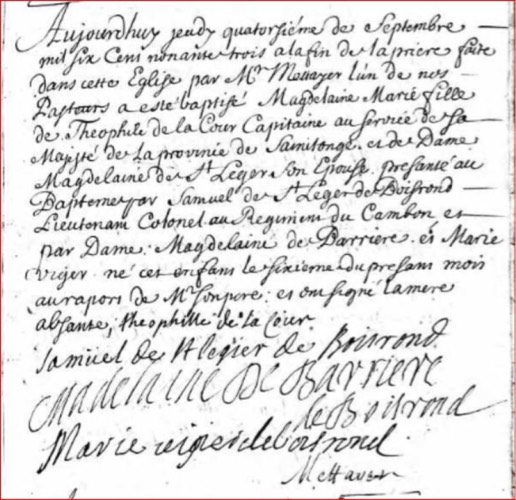 Aujourdhuy jeudy quatorsiéme de Septembre
mil six Cent nonante trois a la fin de la priere faite
dans cette Eglise par Mr. Mettayer l'un de nos
Pasteurs a esté baptisé Magdelaine Marie fille
de Theophile de la Cour Capitaine au service de Sa
Majsté de la province de Saintonge et de Dame
Magdelaine de St Leger son Epouse presanté au
Baptesme par Samuel de St Leger de Boisrond
Lieutenant Colonel au Regiment du Cambon et
par Dame Magdelaine de Barriere et Marie
viger né cet enfant le sixieme du presant mois
au raport de Mr son pere et ont signé la mere
absante, theophille de la Cour
Samuel de St legier de Boisrond
Madelaine De Barriere
de Boisrond
Marie de boisrond
Mettayer